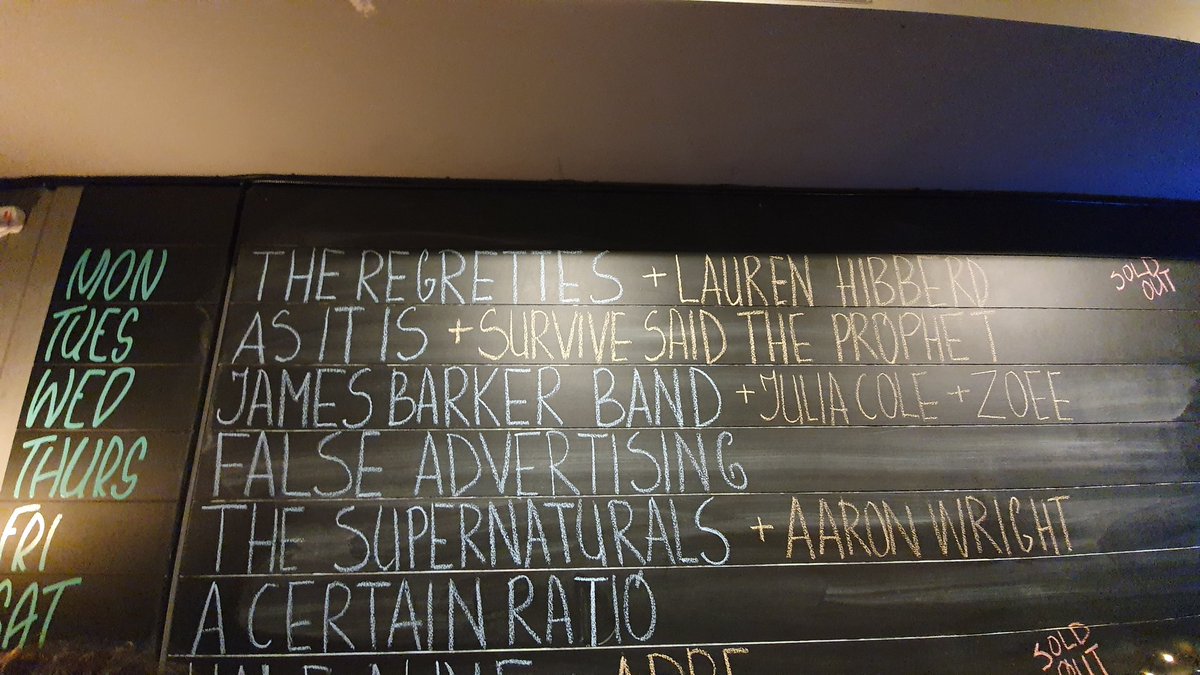 MON THE REGRETTES + LAUREN HIBBERD SOLD OUT
TUES AS IT IS + SURVIVE SAID THE PROPHET
WED JAMES BARKER BAND + JULIA COLE + ZOEE
THURS FALSE ADVERTISING
FRI THE SUPERNATURALS + AARON WRIGHT
SAT A CERTAIN RATIO
SOLD OUT